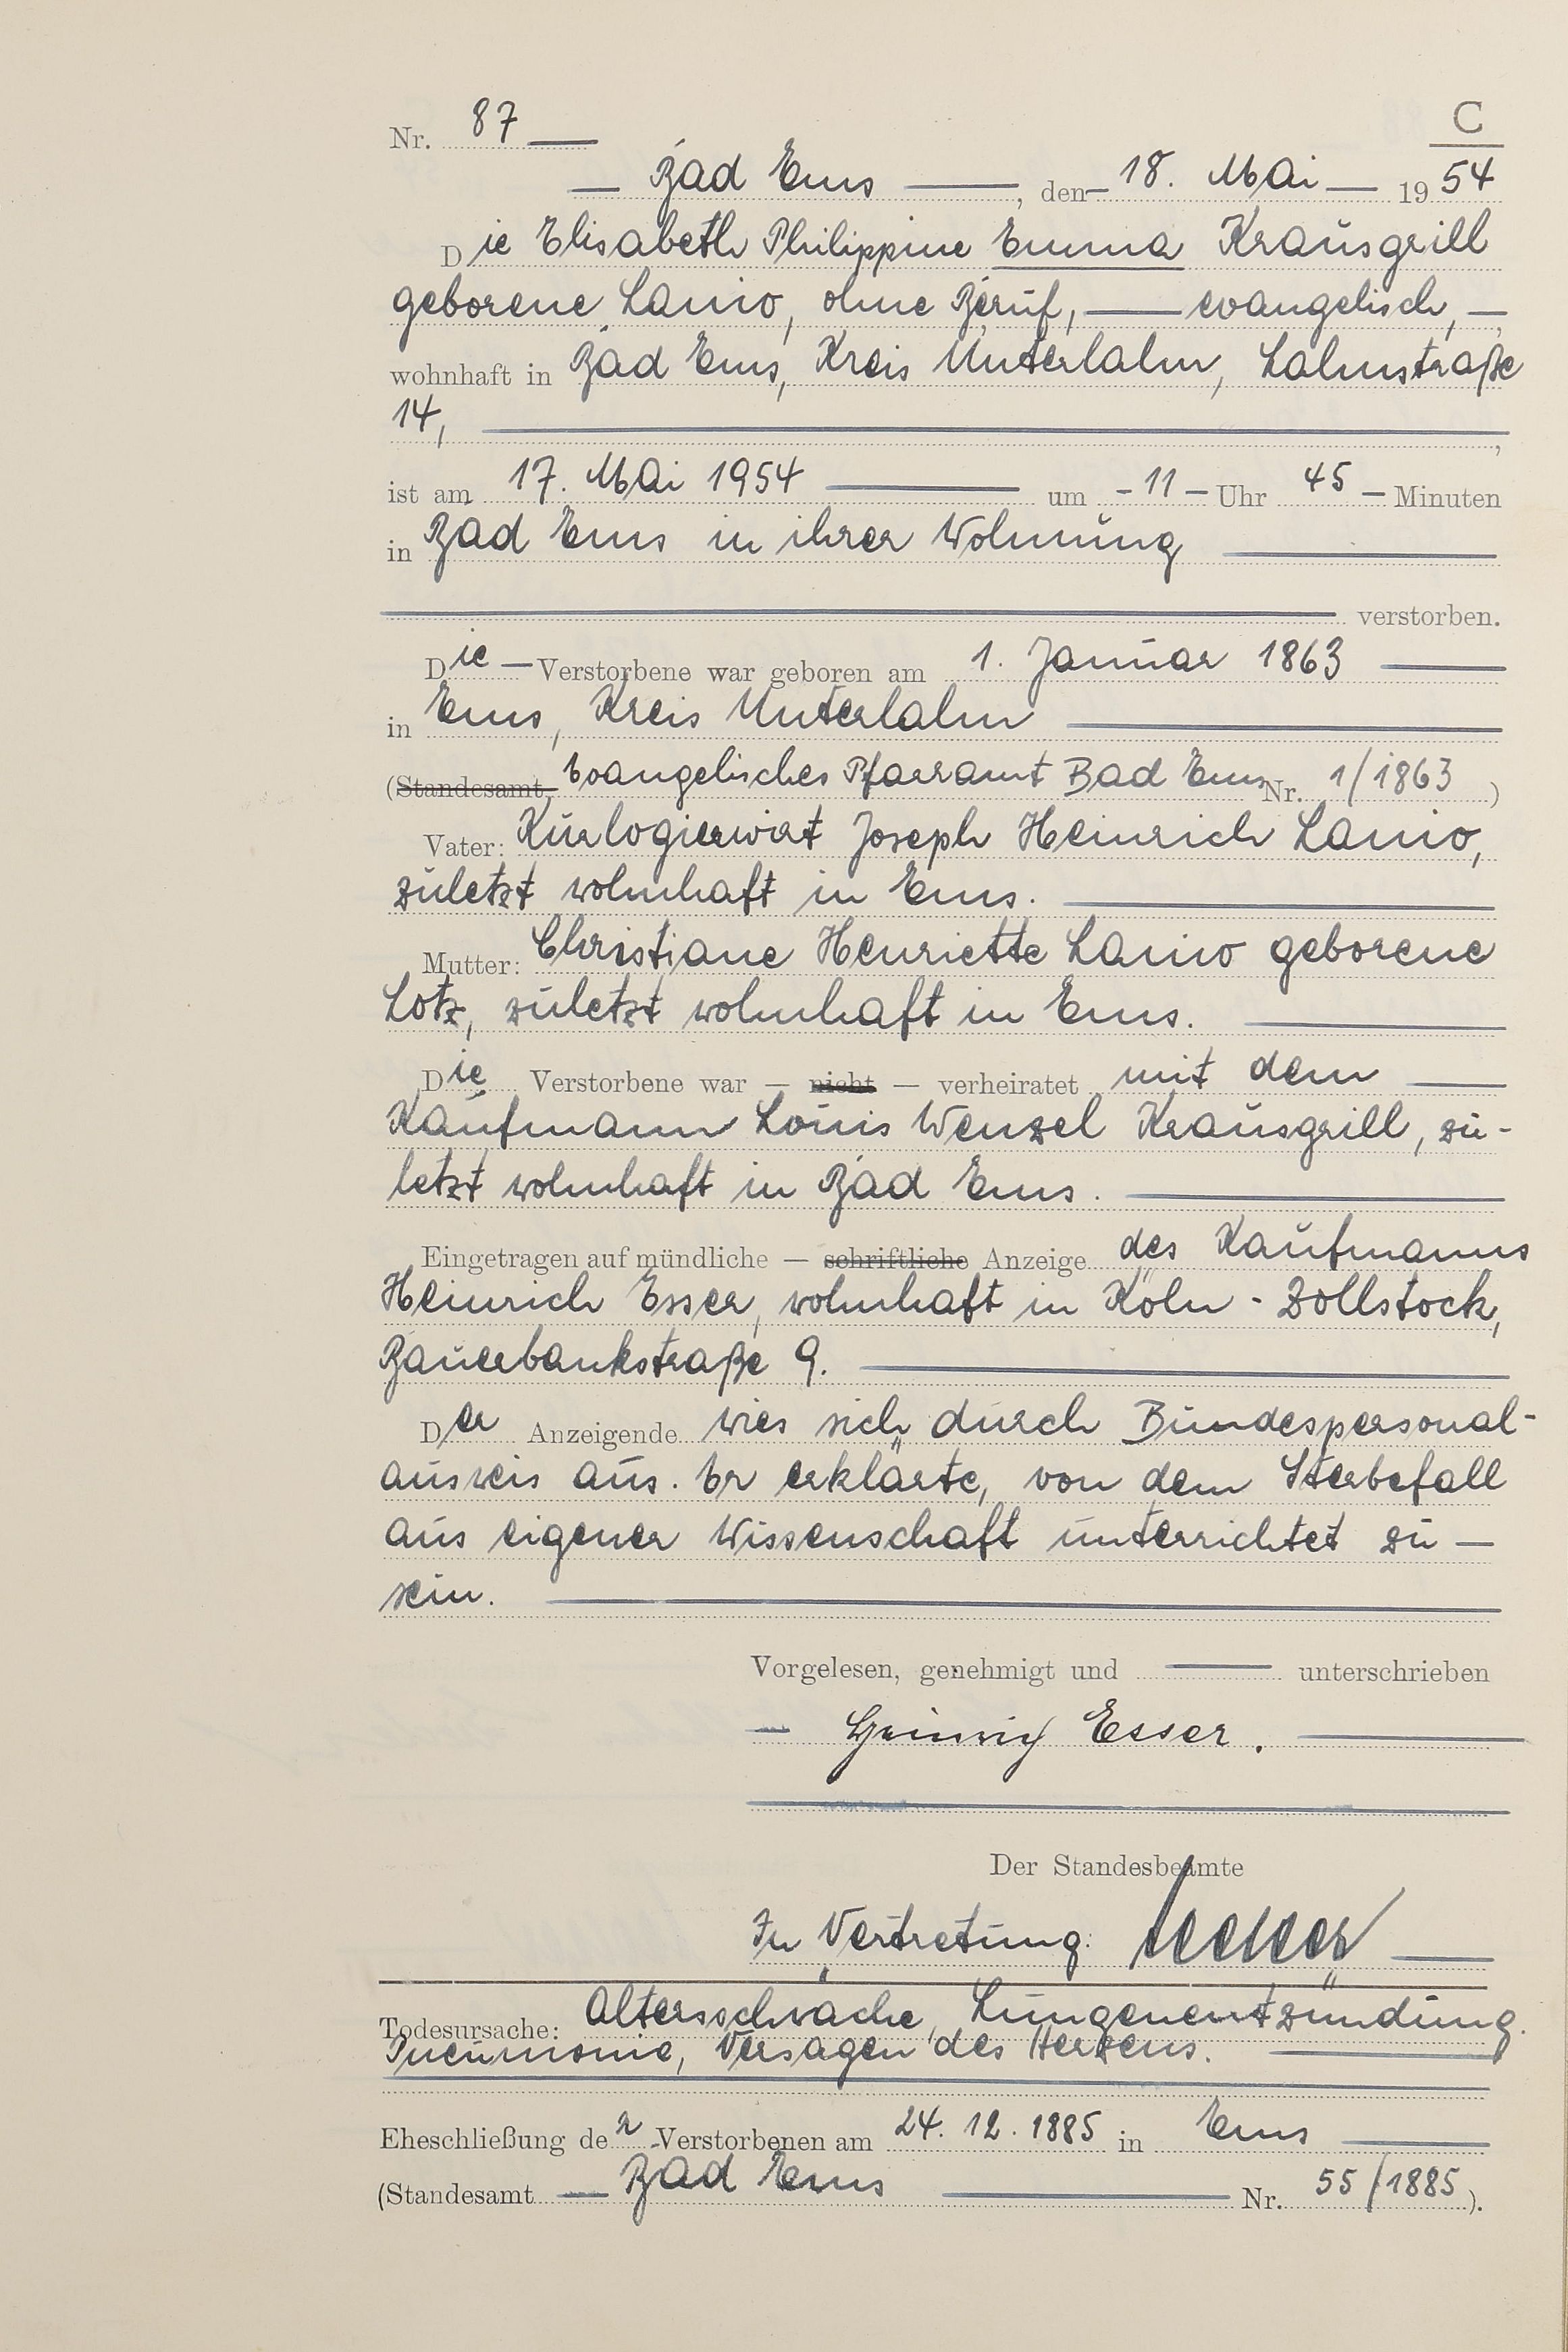 C
Nr. 87 —
— Bad Ems —, den — 18. Mai — 1954
Die Elisabeth Philippine Emma Krausgrill
geborene Lanio, ohne Beruf, — evangelisch, —,
wohnhaft in Bad Ems, Kreis Unterlahn, Lahnstraße
14, —,
ist am 17. Mai 1954 — um - 11 - Uhr 45 — Minuten
in Bad Ems in ihrer Wohnung —
— verstorben.
Die — Verstorbene war geboren am 1. Januar 1863 —
in Ems, Kreis Unterlahn —
(Standesamt, Evangelisches Pfarramt Bad Ems Nr. 1/1863)
Vater: Kurlogierwirt Joseph Heinrich Lanio,
zuletzt wohnhaft in Ems. —
Mutter: Christiane Henriette Lanio geborene
Lotz, zuletzt wohnhaft in Ems. —
Die Verstorbene war — nicht — verheiratet mit dem —
Kaufmann Louis Wenzel Krausgrill, zu-
letzt wohnhaft in Bad Ems. —
Eingetragen auf mündliche — schriftliche Anzeige des Kaufmanns
Heinrich Esser, wohnhaft in Köln - Zollstock,
Bauerbankstraße 9. —
Der Anzeigende wies sich durch Bundespersonal-
ausweis aus. Er erklärte, von dem Sterbefall
aus eigener Wissenschaft unterrichtet zu —
sein. —
Vorgelesen, genehmigt und — unterschrieben
— Heinrich Esser. —
Der Standesbeamte
In Vertretung: —
Todesursache: Altersschwäche, Lungenentzündung.
Pneumonie, Versagen des Herzens. —
Eheschließung der Verstorbenen am 24. 12. 1885 in Ems —
(Standesamt — Bad Ems — Nr. 55/1885).